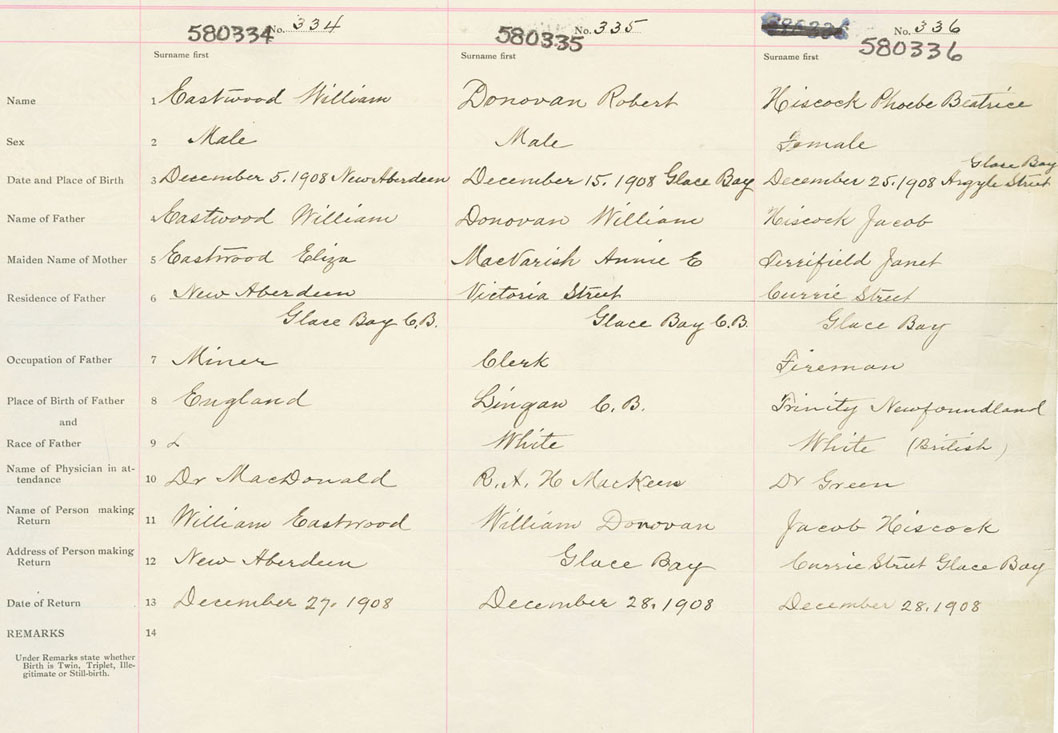 580334 No. 334 580335 No. 335 No. 336 580336
Surname first Surname first Surname first
Name 1 Eastwood William Donovan Robert Hiscock Phoebe Beatrice
Sex 2 Male Male Female
Glace Bay
Date and Place of Birth 3 December 5. 1908 New Aberdeen December 15. 1908 Glace Bay December 25. 1908 Argyle Street
Name of Father 4 Eastwood William Donovan William Hiscock Jacob
Maiden Name of Mother 5 Eastwood Eliza MacVarish Annie E Janet
Residence of Father 6 New Aberdeen Victoria Street Currie Street
Glace Bay C.B. Glace Bay C.B. Glace Bay
Occupation of Father 7 Miner Clerk Fireman
Place of Birth of Father 8 England Lingan C.B. Trinity Newfoundland
and
Race of Father 9 White White (British)
Name of Physician in at-
tendance 10 Dr MacDonald R. A. H MacKeen Dr Green
Name of Person making
Return 11 William Eastwood William Donovan Jacob Hiscock
Address of Person making
Return 12 New Aberdeen Glace Bay Currie Street Glace Bay
Date of Return 13 December 27. 1908 December 28. 1908 December 28. 1908
REMARKS 14
Under Remarks state whether
Birth is Twin, Triplet, Ille-
gitimate or Still-birth.